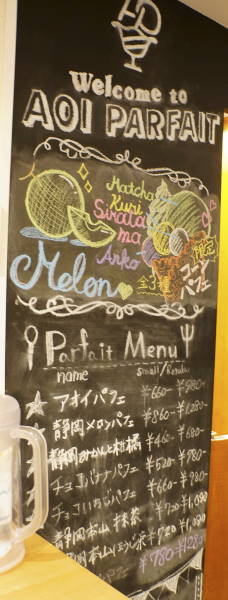 Welcome to
AOI PARFAIT
Matcha
Kuri
Siratama
Anko
Melon
限定
コーンパフェ
全3種
Parfait Menu
name small/Regular
アオイパフェ ¥660- ¥980-
静岡メロンパフェ ¥860- ¥1,280-
静岡みかんと柑橘 ¥460- ¥680-
チョコバナナパフェ ¥520- ¥780-
チョコいちごパフェ ¥660- ¥980-
静岡本山抹茶 ¥720- ¥1,080
静岡本山ほうじ茶 ¥720 ¥1,080
¥780- ¥1280-